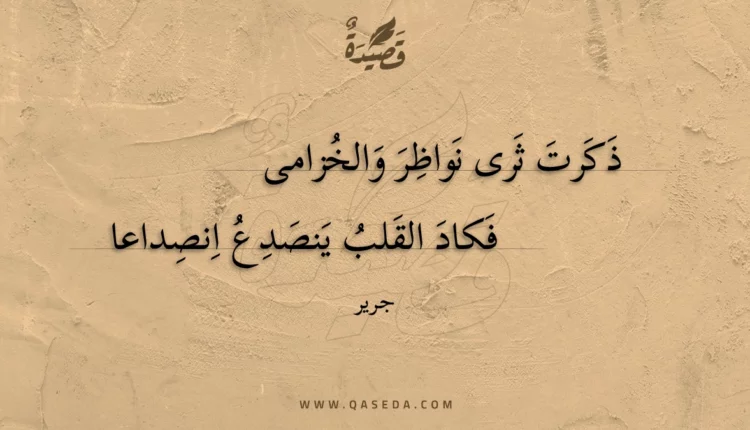 قَصِيدَةٌ
ذَكَرتَ ثَرى نَواظِرَ وَالخُزامى
فَكادَ القَلبُ يَنصَدِعُ اِنصِداعا
جرير
WWW.QASEDA.COM